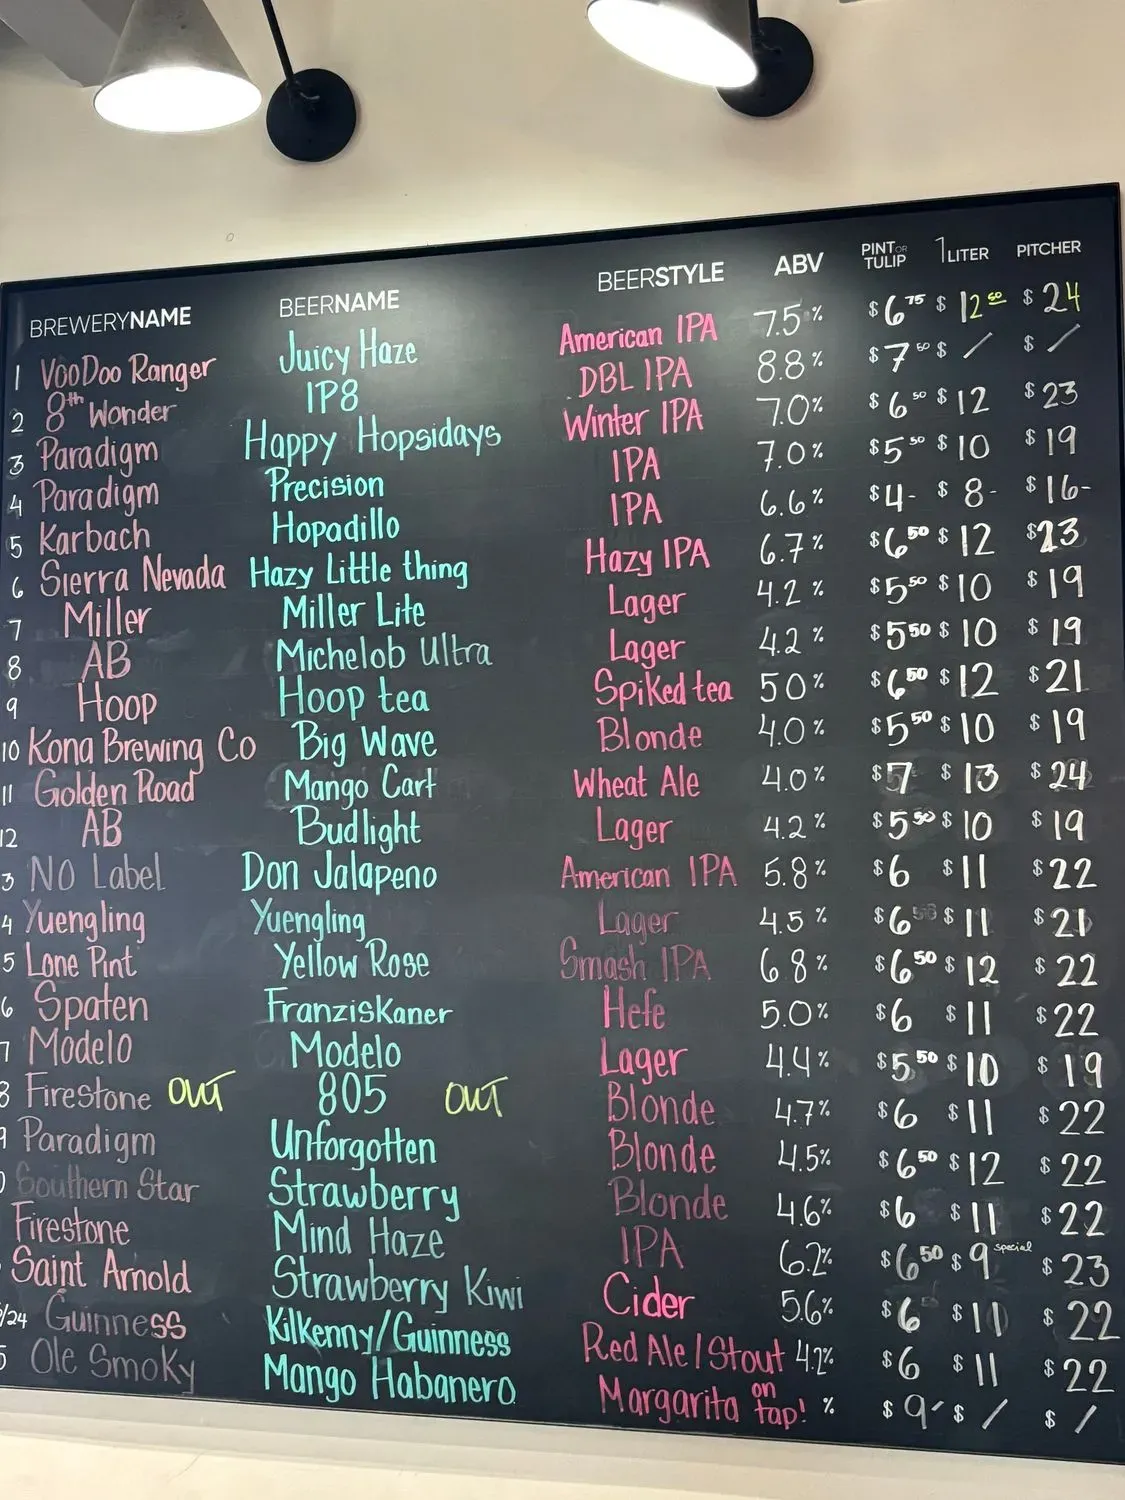 BREWERYNAME BEERNAME BEERSTYLE ABV PINT OR TULIP 1 LITER PITCHER
1 VooDoo Ranger Juicy Haze American IPA 7.5% $6 75 $12 50 $24
2 8th Wonder IP8 DBL IPA 8.8% $7 50 $ / $ /
3 Paradigm Happy Hopsidays Winter IPA 7.0% $6 50 $12 $23
4 Paradigm Precision IPA 7.0% $5 50 $10 $19
5 Karbach Hopadillo IPA 6.6% $4- $8- $16-
6 Sierra Nevada Hazy Little thing Hazy IPA 6.7% $6 50 $12 $23
7 Miller Miller Lite Lager 4.2% $5 50 $10 $19
8 AB Michelob Ultra Lager 4.2% $5 50 $10 $19
9 Hoop Hoop tea Spiked tea 50% $6 50 $12 $21
10 Kona Brewing Co Big Wave Blonde 4.0% $5 50 $10 $19
11 Golden Road Mango Cart Wheat Ale 4.0% $7 $13 $24
12 AB Budlight Lager 4.2% $5 50 $10 $19
3 NO Label Don Jalapeno American IPA 5.8% $6 $11 $22
4 Yuengling Yuengling Lager 4.5% $6 $11 $21
5 Lone Pint Yellow Rose Smash IPA 6.8% $6 50 $12 $22
6 Spaten Franziskaner Hefe 5.0% $6 $11 $22
7 Modelo Modelo Lager 4.4% $5 50 $10 $19
8 Firestone OUT 805 OUT Blonde 4.7% $6 $11 $22
9 Paradigm Unforgotten Blonde 4.5% $6 50 $12 $22
0 Southern Star Strawberry Blonde 4.6% $6 $11 $22
Firestone Mind Haze IPA 6.2% $6 50 $9 special $23
Saint Arnold Strawberry Kiwi Cider 5.6% $6 $11 $22
/24 Guinness Kilkenny/Guinness Red Ale/Stout 4.2% $6 $11 $22
5 Ole Smoky Mango Habanero Margarita on tap! % $9- $ / $ /